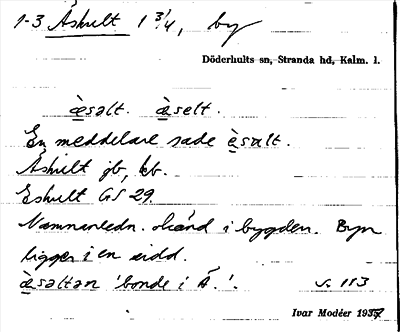 1-3 Åshult 1 3/4, by
Döderhults sn, Stranda hd, Kalm. l.
æ̀salt. æ̀selt.
En meddelare sade è̱salt.
Åshilt jb, kb.
Eshult GS 29.
Namnanledn. okänd i bygden. Byn
ligger i en sidd.
æ̀saltan 'bonde i Å.'. s. 113
Ivar Modéer 1937